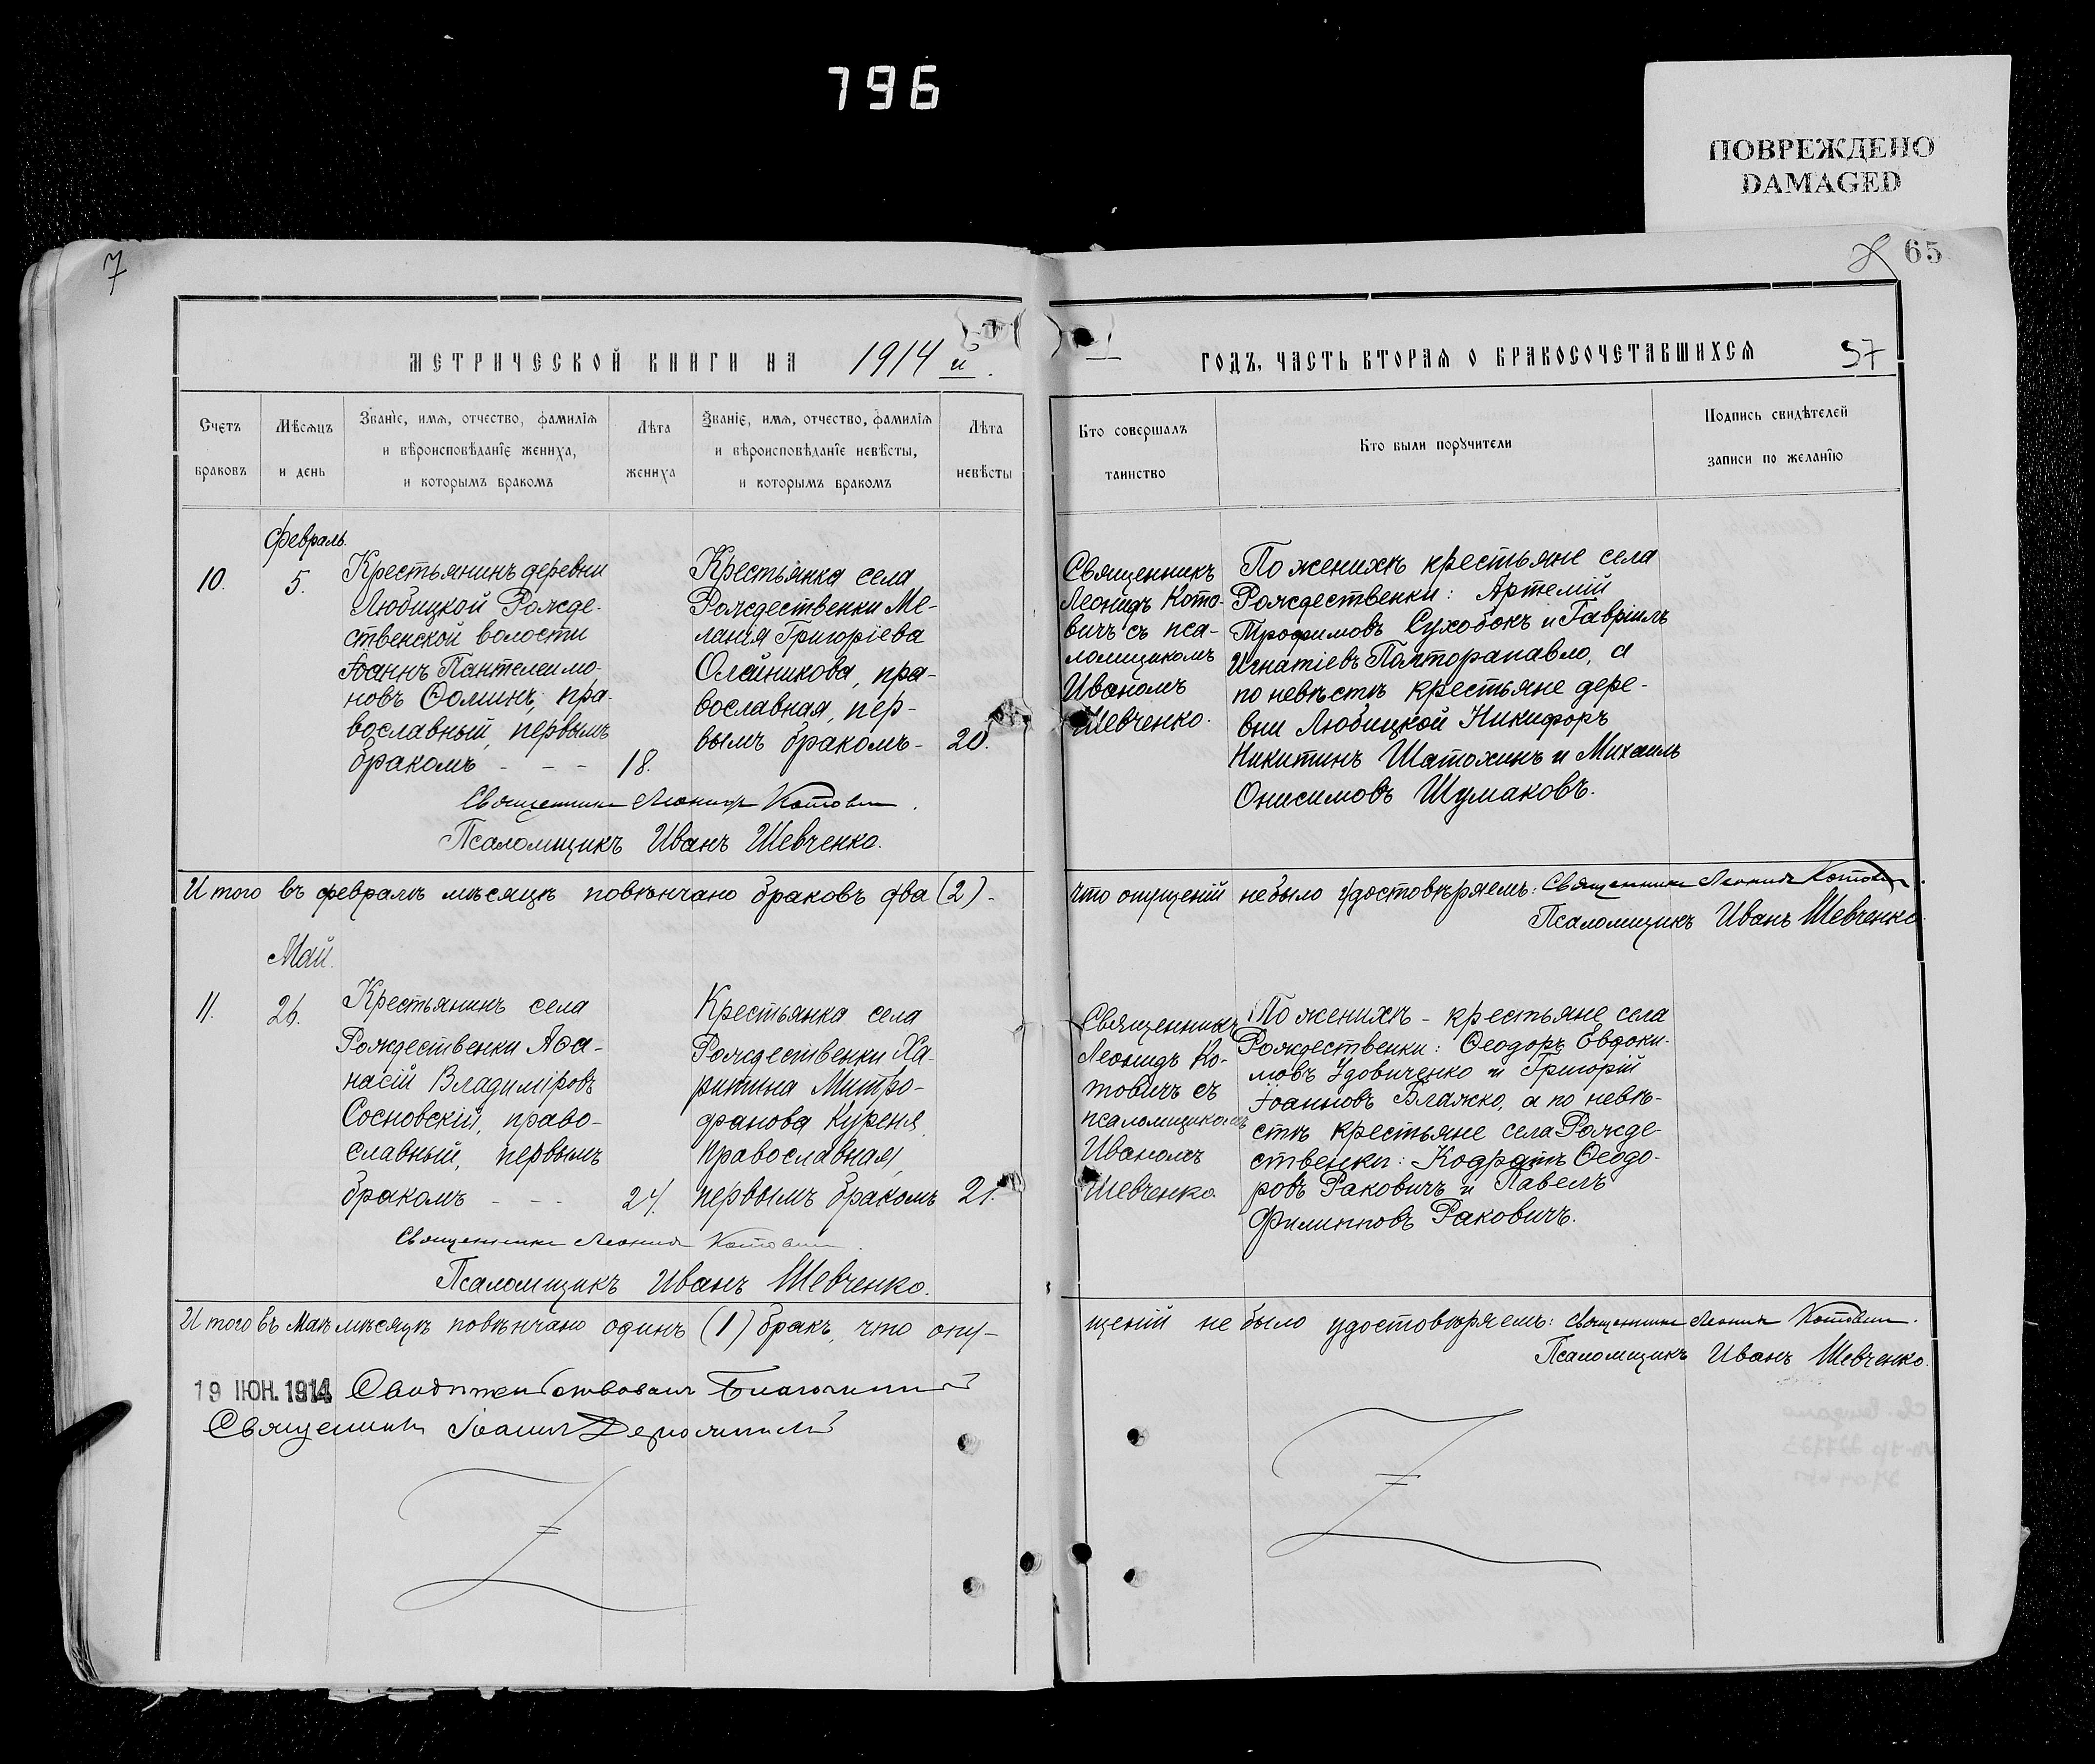 796
ПОВРЕЖДЕНО
DAMAGED
7
65
МЕТРИЧЕСКОЙ КНИГИ НА 1914 й.
ГОДЪ, ЧАСТЬ ВТОРАЯ О БРАКОСОЧЕТАВШИХСЯ
37
Счетъ
браковъ
Мѣсяцъ
и день
Званіе, имя, отчество, фамилія
и вѣроисповѣданіе жениха,
и которымъ бракомъ
Лѣта
жениха
Званіе, имя, отчество, фамилія
и вѣроисповѣданіе невѣсты,
и которымъ бракомъ
Лѣта
невѣсты
Кто совершалъ
таинство
Кто были поручители
Подпись свидѣтелей
записи по желанію
Февраль.
10.
5.
Крестьянинъ деревни
Любицкой Рожде-
ственской волости
Іоаннъ Пантелеимо-
новъ Ѳоминъ, пра-
вославный, первымъ
бракомъ - - -
18.
Крестьянка села
Рождественки Ме-
ланія Григоріева
Олейникова, пра-
вославная, пер-
вымъ бракомъ-
20.
Священникъ
Леонидъ Кото-
вичъ съ пса-
ломщикомъ
Иваномъ
Шевченко.
По женихѣ крестьяне села
Рождественки: Артемій
Трофимовъ Сухобокъ и Гавріилъ
Игнатіевъ Полторапавло, а
по невѣстѣ крестьяне дере-
вни Любицкой Никифоръ
Никитинъ Шатохинъ и Михаилъ
Онисимовъ Шумаковъ.
Священникъ Леонидъ Котовичъ.
Псаломщикъ Иванъ Шевченко.
Итого въ февралѣ мѣсяцѣ повѣнчано браковъ два (2).
Что опущеній не было удостовѣряемъ: Священникъ Леонидъ Котовичъ.
Псаломщикъ Иванъ Шевченко.
Май.
11.
26.
Крестьянинъ села
Рождественки Аѳа-
насій Владиміровъ
Сосновскій, право-
славный, первымъ
бракомъ - - -
24.
Крестьянка села
Рождественки Ха-
ритина Митро-
фанова Куреня
православная,
первымъ бракомъ
21.
Священникъ
Леонидъ Ко-
товичъ съ
псаломщикомъ
Иваномъ
Шевченко.
По женихѣ - крестьяне села
Рождественки: Ѳеодоръ Евдоки-
мовъ Удовиченко и Григорій
Іоанновъ Блажко, а по невѣ-
стѣ крестьяне села Рожде-
ственки: Кодратъ Ѳеодо-
ровъ Раковичъ и Павелъ
Филипповъ Раковичъ.
Священникъ Леонидъ Котовичъ.
Псаломщикъ Иванъ Шевченко.
Итого въ Маѣ мѣсяцѣ повѣнчано одинъ (1) бракъ, что опу-
щеній не было удостовѣряемъ: Священникъ Леонидъ Котовичъ.
Псаломщикъ Иванъ Шевченко.
19 ІЮН. 1914 Свидѣтельствовалъ Благочинный
Священникъ Іоаннъ